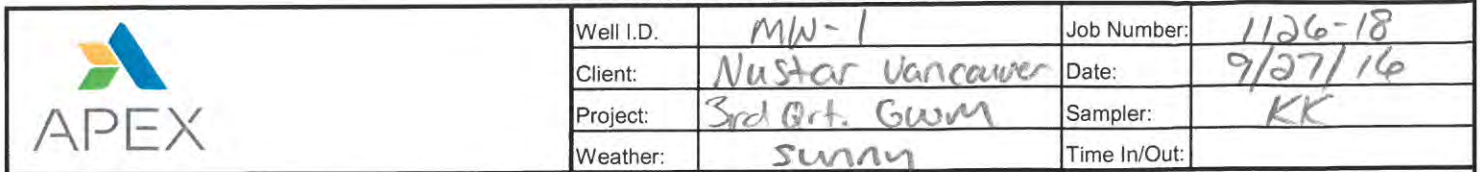 APEX
Well I.D. MW-1 Job Number: 1126-18
Client: Nustar Vancouver Date: 9/27/16
Project: 3rd Qrt. GWM Sampler: KK
Weather: Sunny Time In/Out: